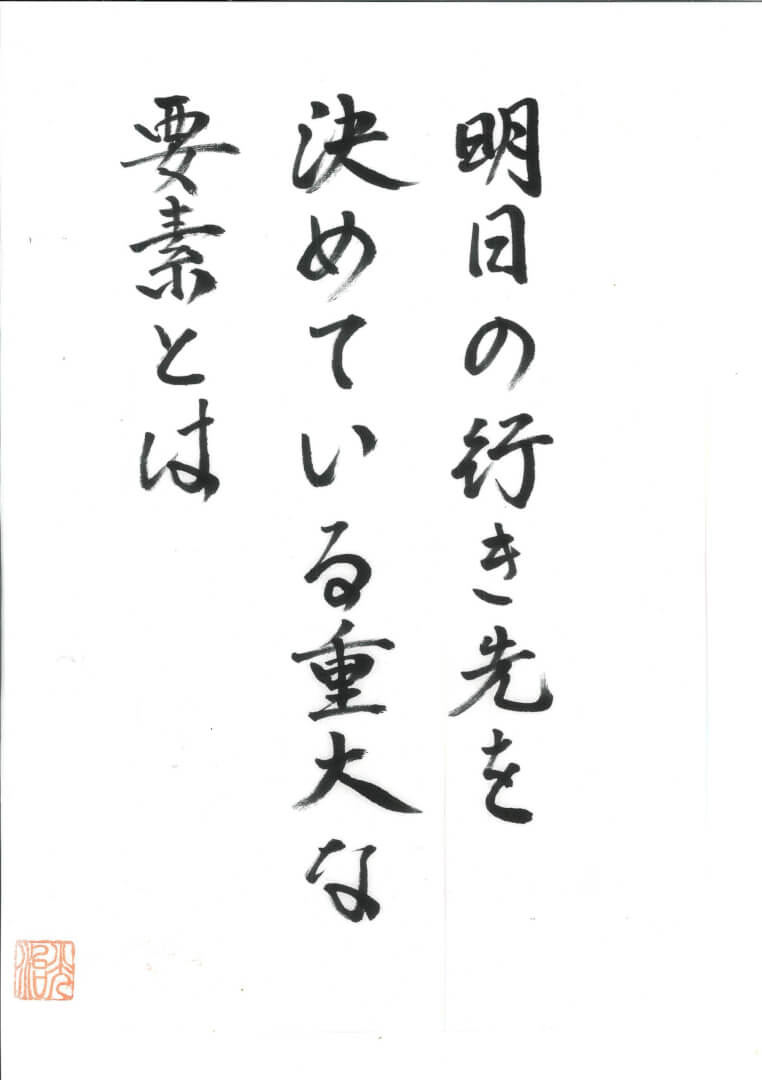 明日の行き先を
決めている重大な
要素とは